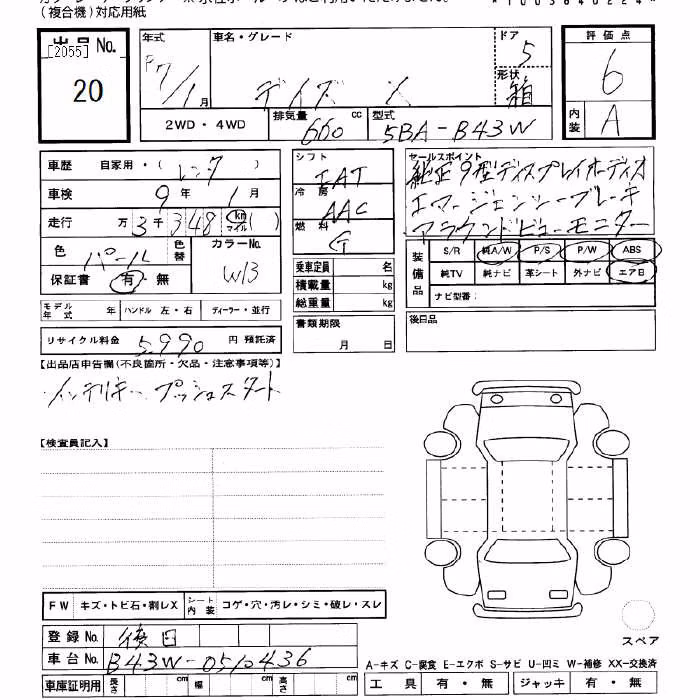 (複合機)対応用紙
*1003640224*
出品No. [2055] 20
年式 R7/1月
車名・グレード デイズ X
ドア 5
形状 箱
評価点 6
内装 A
2WD・4WD
排気量 660 cc
型式 5BA-B43W
車歴 自家用・(レンタ)
車検 9年 1月
走行 万 3千 348 km マイル ( )
色 パール 色替 カラーNo. W13
保証書 有・無
モデル年式 年 ハンドル 左・右 ディーラー・並行
リサイクル料金 5,990 円 預託済
シフト IAT
冷房 AAC
燃料 G
乗車定員 名
積載量 kg
総重量 kg
書類期限 月 日
セールスポイント
純正9型ディスプレイオーディオ
エマージェンシーブレーキ
アラウンドビューモニター
装備品 S/R 純A/W P/S P/W ABS
純TV 純ナビ 革シート 外ナビ エアB
ナビ型番:
後日品
【出品店申告欄(不良箇所・欠品・注意事項等)】
インテリキー プッシュスタート
【検査員記入】
FW キズ・トビ石・割レX シート内装 コゲ・穴・汚レ・シミ・破レ・スレ
登録No. 後日
車台No. B43W-0510436
車庫証明用 長さ cm 幅 cm 高さ cm
スペア
A-キズ C-腐食 E-エクボ S-サビ U-凹ミ W-補修 XX-交換済
工具 有・無 ジャッキ 有・無